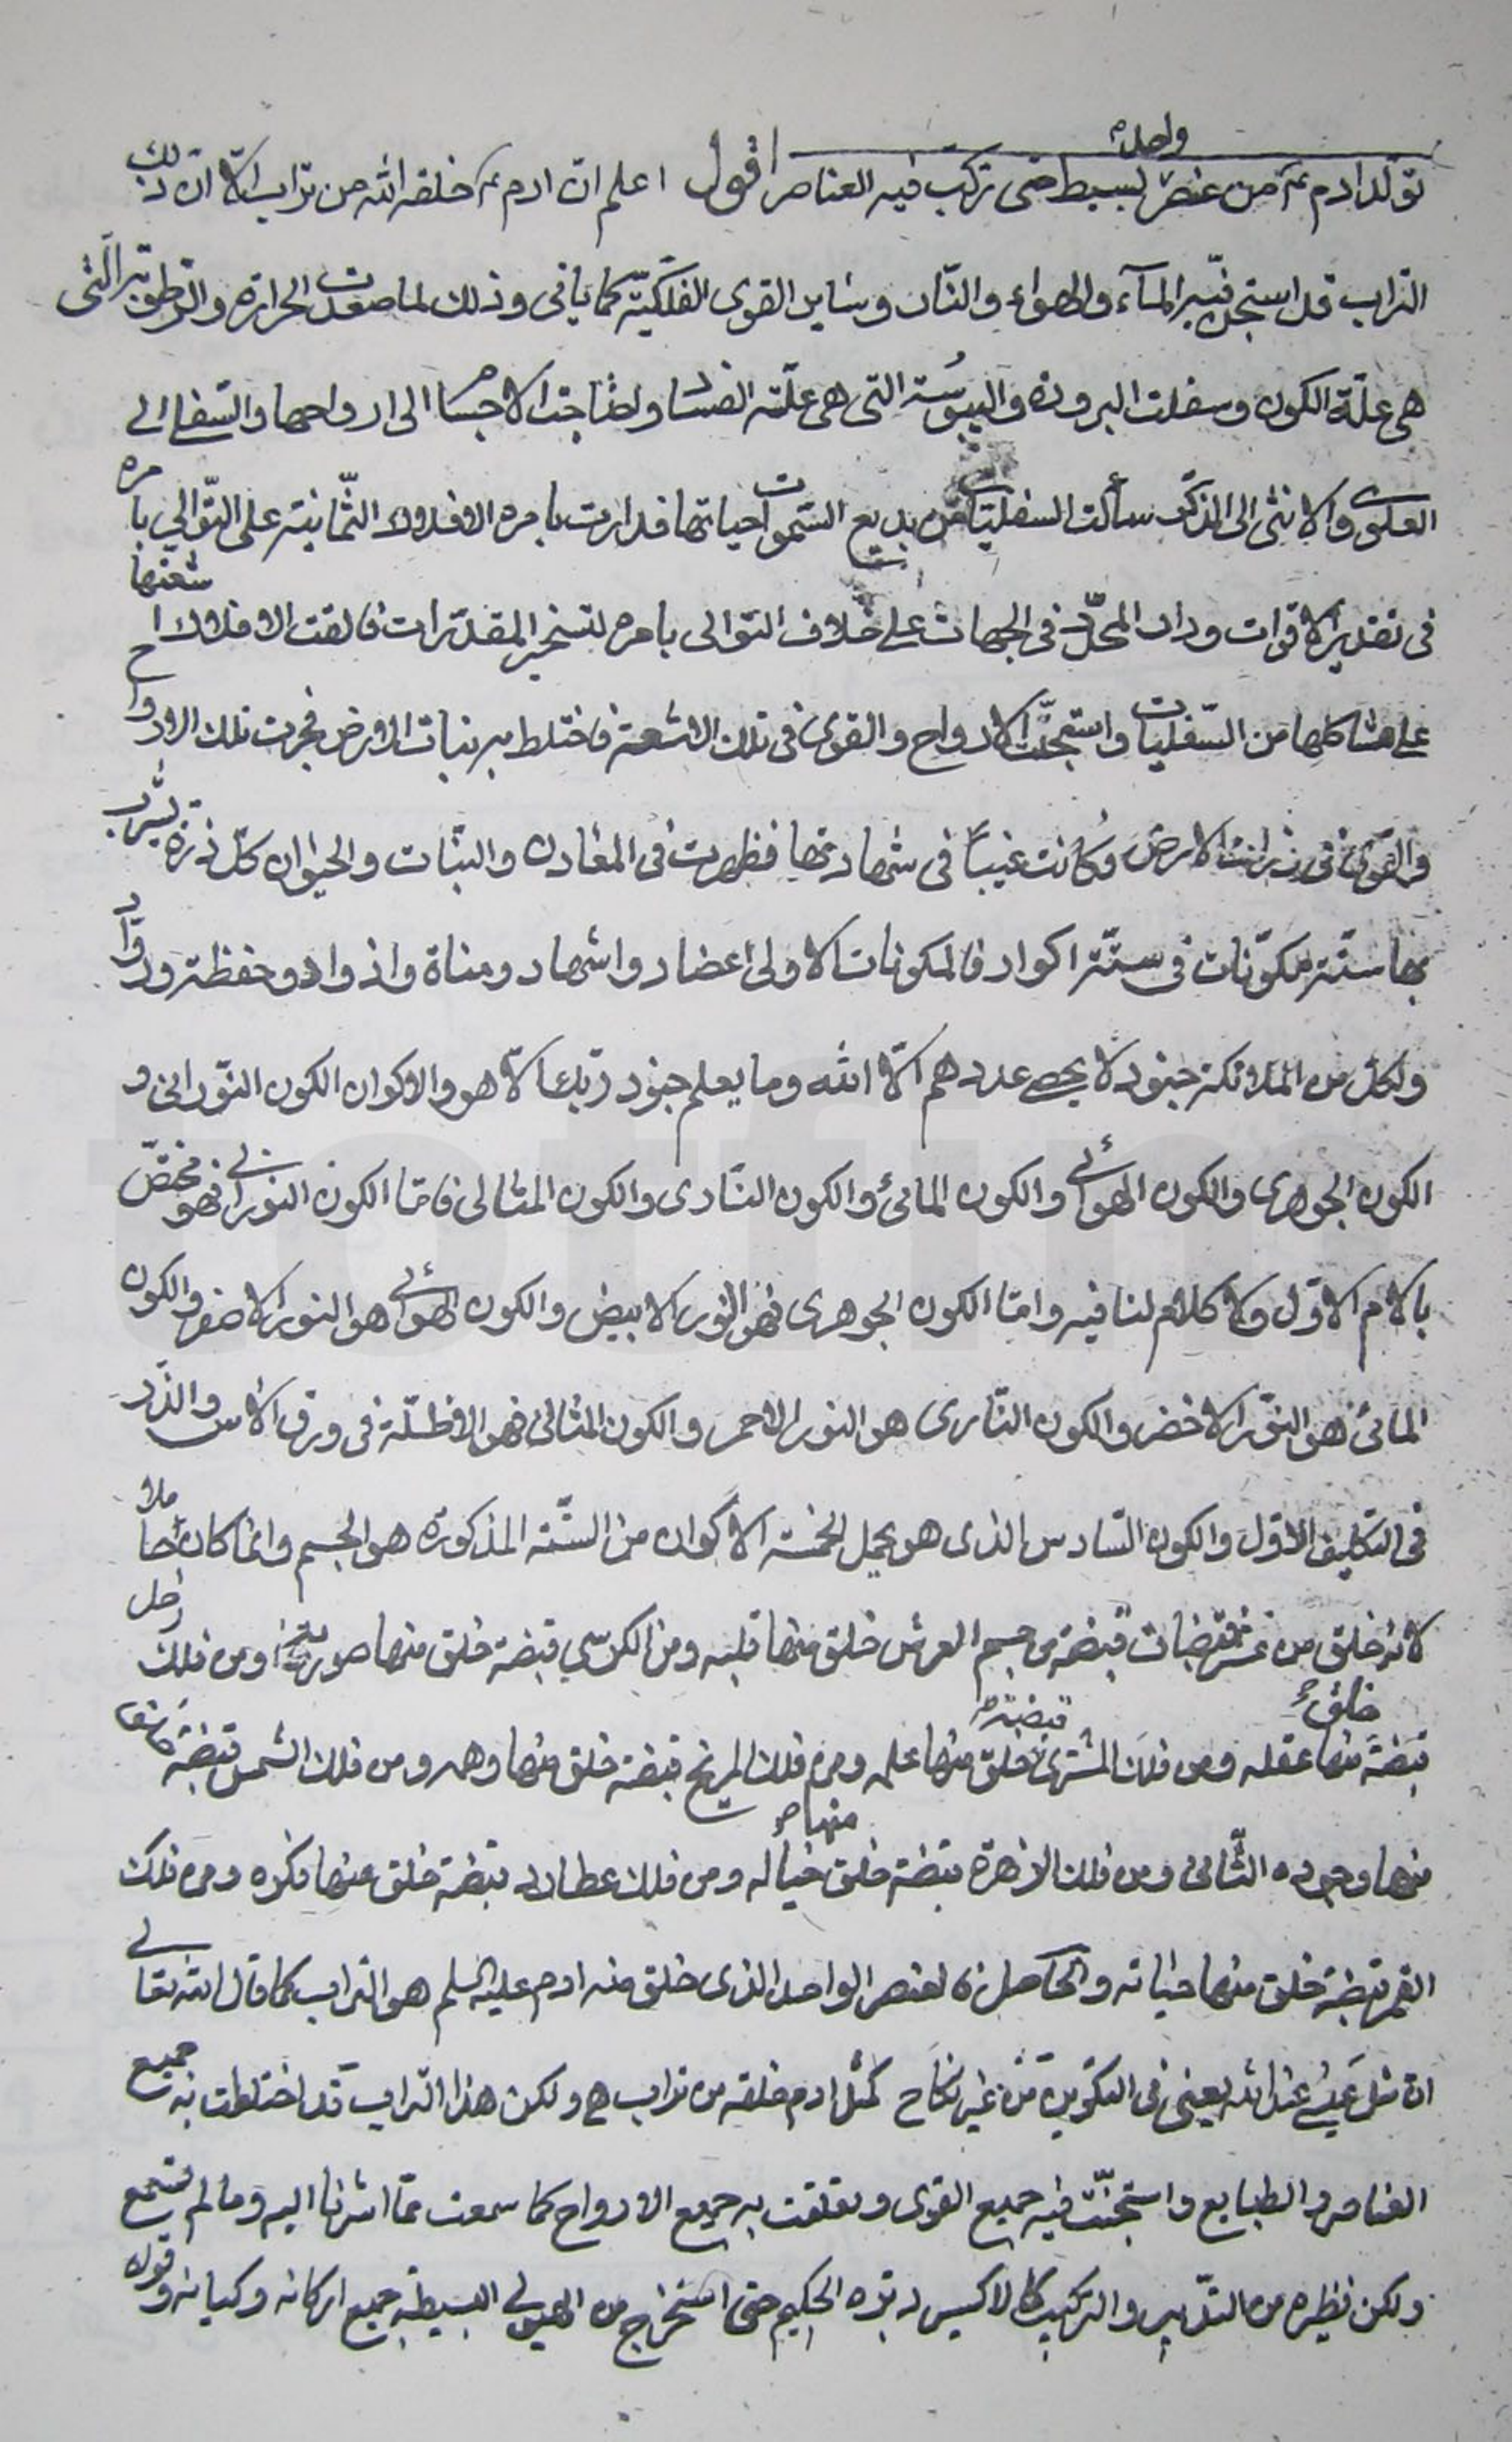 تولد ادم ع من عنصر واحد بسيط حتى تركب فيه العناصر اقول اعلم ان ادم ع خلقه الله من تراب الّا انّ ذلك
التراب قد استجن فيه المآء والهواء والنّار وساير القوى الفلكيّة كما ياتى وذلك لما صعدت الحرارة والرّطوبة الّتى
هى علّة الكون وسفلت البرودة واليبوسة التى هى علّة الفساد واحتاجت الاجسا الى ارواحها والسّفلى الى
العلوى والانثى الى الذكر سألت السفليّات من بديع السّموات حياتها فدارت بامره الافلاك الثّمانية على التّوالي بامره
فى تقدير الاقوات ودار المحدّد فى الجهات على خلاف التوالى بامره لتسخير المقدّرات فالقت الافلاك اشعتها
على مشاكلها من السّفليات واستجنّت الارواح والقوى فى تلك الاشعة فاختلط بهن نبات الارض فجرت تلك الارواح
والقوى فى نبات الارض وكانت غيباً فى شهادتها فظهرت فى المعادن والنبّات والحيوان كلّ ذرة يشرب
بها ستّة مكوّنات فى ستّة اكوار فالمكونات الاولى اعضاد واشهاد ومناة واذواد وحفظة وروّاد
ولكل من الملائكة جنود لا يحصى عددهم الّا الله وما يعلم جنود ربّك الّا هو والاكوان الكون النّورانى و
الكون الجوهرى والكون الهوائى والكون المائى والكون النّارى والكون المثالى فامّا الكون النورانى فهو مختصّ
بالامر الاوّل ولا كلام لنا فيه وامّا الكون الجوهرى فهو النور الابيض والكون الهوائى هو النور الاصفر والكون
المائى هو النوّر الاخضر والكون النّارى هو النور الاحمر والكون المثالى فهو الاظلّة فى ورق الاس والذّر
فى التكليف الاوّل والكون السّادس الذى هو يحمل الخمسة الاكوان من الستّة المذكورة هو الجسم وانما كان حاملا
لانه خلق من عشر قبضات قبضة من جسم العرش خلق منها قلبه ومن الكرسي قبضة خلق منها صدره ومن فلك زحل
قبضة خلق منها عقله ومن فلك المشترى قبضة خلق منها علمه ومن فلك المريخ قبضة خلق منها وهمه ومن فلك الشمس قبضة خلق
منها وجوده الثّانى ومن فلك الزهرة قبضة خلق منها خياله ومن فلك عطارد قبضة خلق منها فكره ومن فلك
القمر قبضة خلق منها حياته والحاصل ان العنصر الواحد الذى خلق منه ادم عليه السلم هو التراب كما قال الله تعالى
ان مثل عيسى عند الله يعنى فى التكوين من غير نكاح كمثل ادم خلقه من تراب ه ولكن هذا التراب قد اختلطت به جميع
العناصر والطبايع واستجنّت فيه جميع القوى وتعلقت به جميع الارواح كما سمعت عمّا اشرنا اليه وما لم تسمع
ولكن نظيره من التدبير والتركيب كالاكسير دبّره الحكيم حتى استخرج من الهيولى البسيطة جميع اركانه وكيانه وقوله